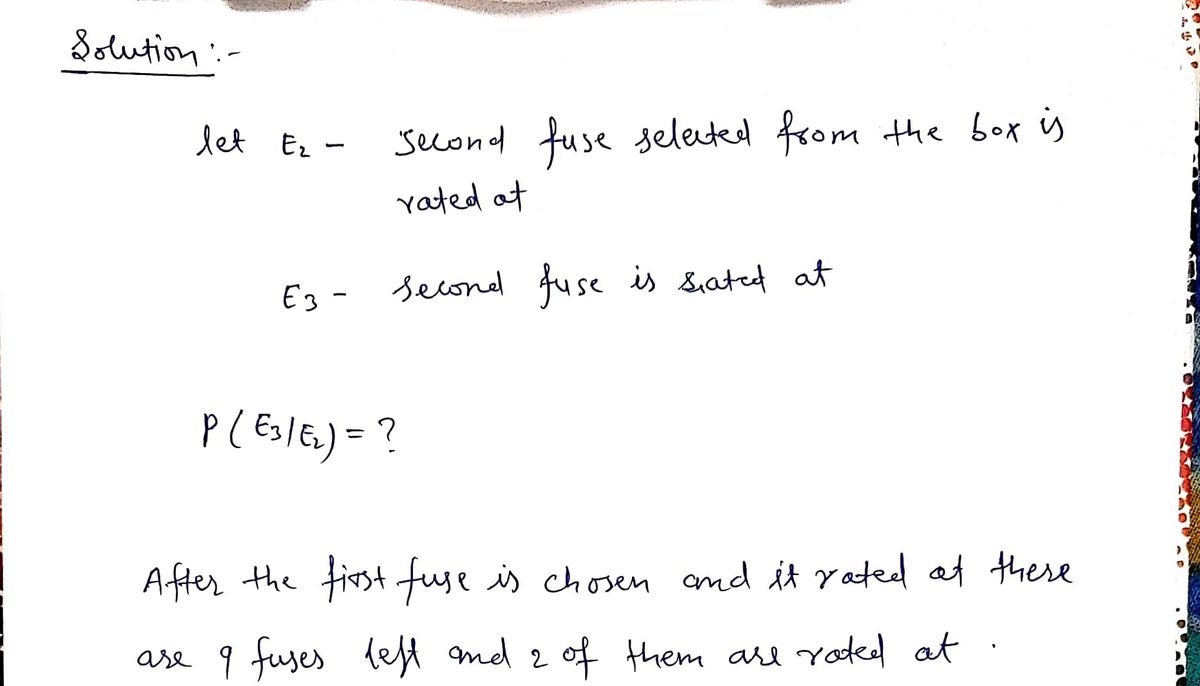 Solution :-
let E2 - second fuse selected from the box is
rated at
E3 - second fuse is rated at
P(E3/E2) = ?
After the first fuse is chosen and it rated at there
are 9 fuses left and 2 of them are rated at .